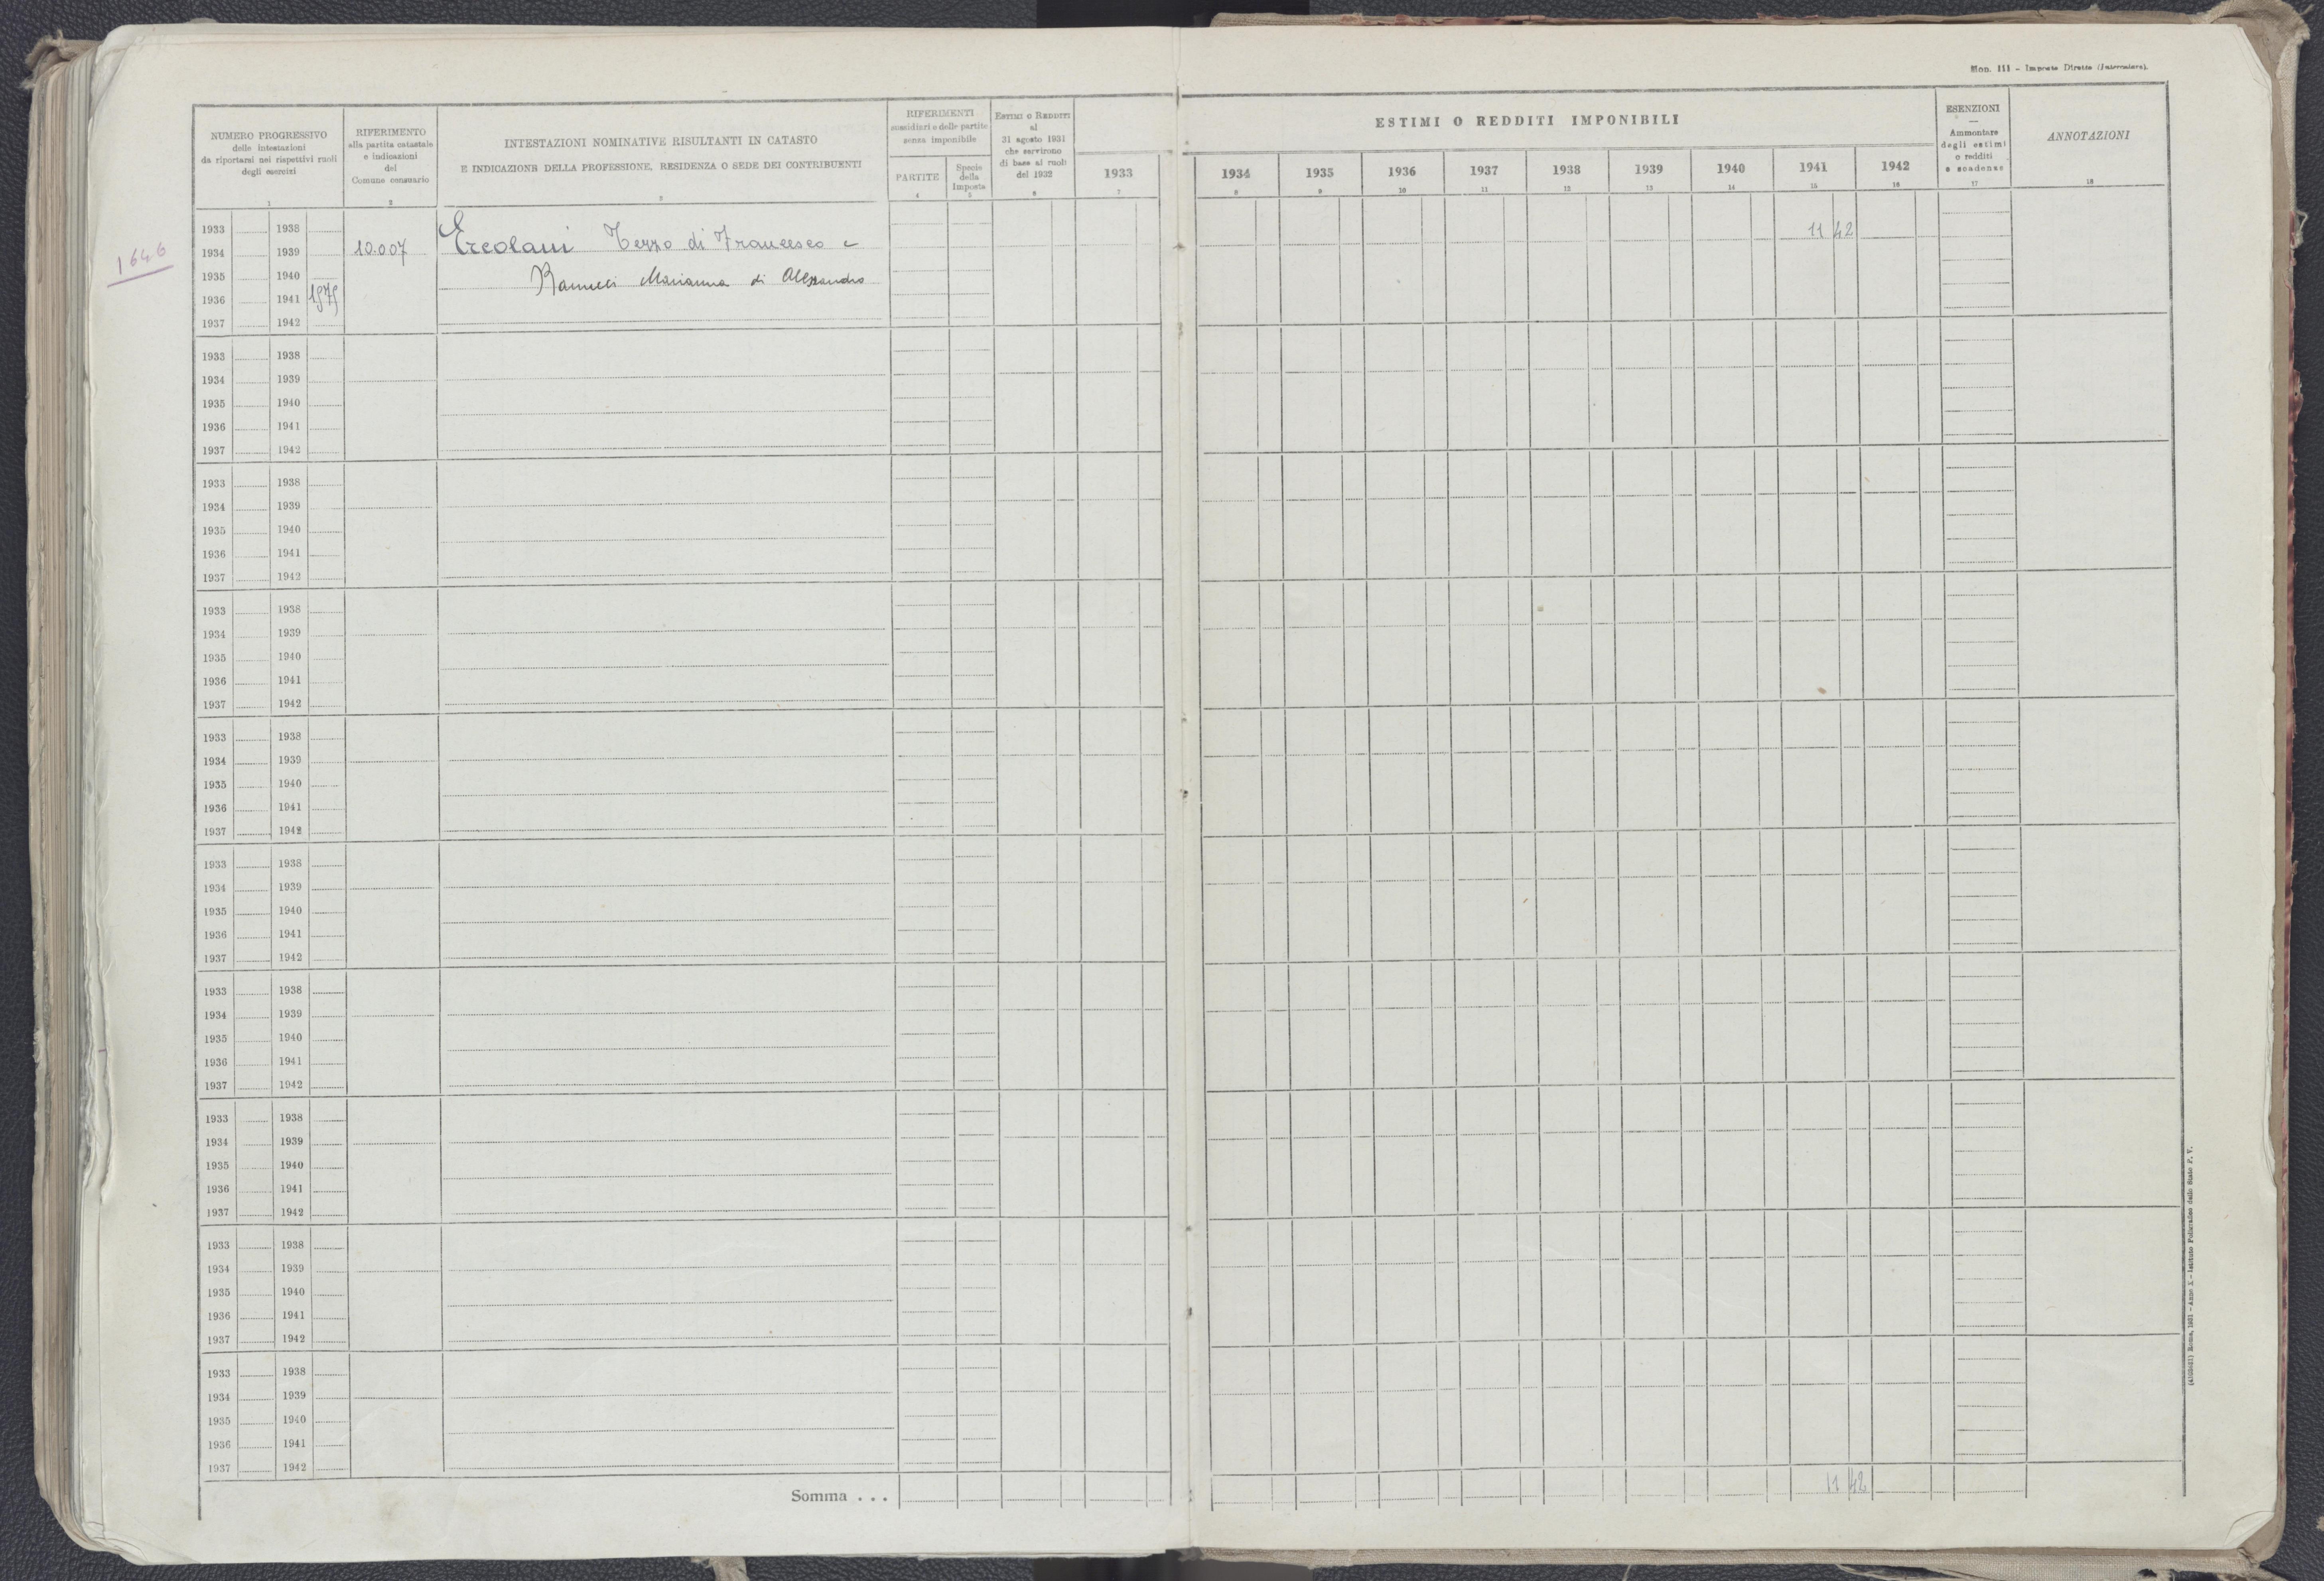 Mon. III - Imposte Dirette (Intercalare).
NUMERO PROGRESSIVO
delle intestazioni
da riportarsi nei rispettivi ruoli
degli esercizi
1
RIFERIMENTO
alla partita catastale
e indicazioni
del
Comune censuario
2
INTESTAZIONI NOMINATIVE RISULTANTI IN CATASTO
E INDICAZIONE DELLA PROFESSIONE, RESIDENZA O SEDE DEI CONTRIBUENTI
3
RIFERIMENTI
sussidiari o delle partite
senza imponibile
PARTITE
4
Specie
della
Imposta
5
ESTIMI O REDDITI
al
31 agosto 1931
che servirono
di base ai ruoli
del 1932
6
1933
7
ESTIMI O REDDITI IMPONIBILI
1934 1935 1936 1937 1938 1939 1940 1941 1942
8 9 10 11 12 13 14 15 16
ESENZIONI
—
Ammontare
degli estimi
o redditi
e scadenze
17
ANNOTAZIONI
18
1646
1933 1938
1934 1939 10.007 Ercolani Terzo di Francesco e 11 42
1935 1940 Ranucci Marianna di Alessandro
1936 1941 1979
1937 1942
1933 1938
1934 1939
1935 1940
1936 1941
1937 1942
1933 1938
1934 1939
1935 1940
1936 1941
1937 1942
1933 1938
1934 1939
1935 1940
1936 1941
1937 1942
1933 1938
1934 1939
1935 1940
1936 1941
1937 1942
1933 1938
1934 1939
1935 1940
1936 1941
1937 1942
1933 1938
1934 1939
1935 1940
1936 1941
1937 1942
1933 1938
1934 1939
1935 1940
1936 1941
1937 1942
1933 1938
1934 1939
1935 1940
1936 1941
1937 1942
1933 1938
1934 1939
1935 1940
1936 1941
1937 1942
Somma . . . 11 42
Roma, 1931 - Anno X - Istituto Poligrafico dello Stato P. V.